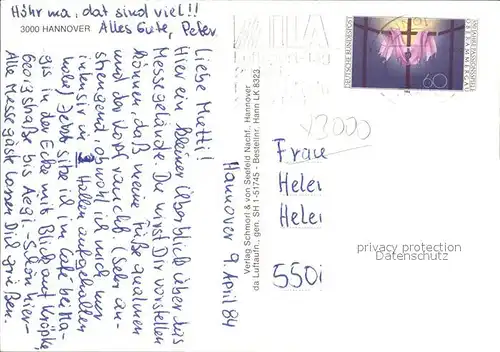 Höhr ma, dat sind viel!!
Alles Gute, Peter
3000 HANNOVER
Hannover 9. April 84
Liebe Mutti!
Hier ein kleiner Überblick über das
Messegelände. Du wirst Dir vorstellen
können, daß meine Füße qualmen
und der Kopf raucht. (Sehr an-
strengend obwohl ich mich nur
intensiv in 3 Hallen aufgehalten
habe) Jetzt sitze ich im Café bei Ma-
gis in der Ecke mit Blick auf Kröpke,
Georgstraße bis Aegi. - Schön hier -
Alle Messegäste lassen Dich grüßen.
Verlag Schmorl & von Seefeld Nachf., Hannover
da Luftaufn., gen. SH 1-51745 - Bestellnr. Hann LK 8323
DEUTSCHE BUNDESPOST
OBERAMMERGAU
60
V3000
Frau
Helei
Helei
550i
privacy protection
Datenschutz